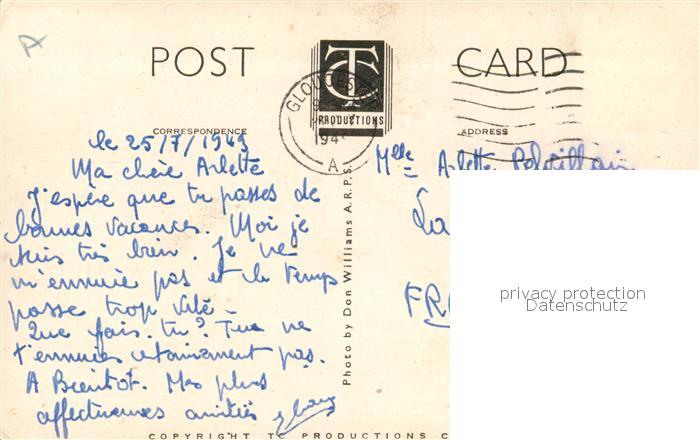 POST CARD
TC
PRODUCTIONS
GLOUCESTER
194
A
CORRESPONDENCE
ADDRESS
le 25/7/1949
Ma chère Arlette
J'espère que tu passes de
bonnes vacances. Moi je
suis très bien. Je ne
m'ennuie pas et le temps
passe trop vite -
Que fais-tu? Tu ne
t'ennuies certainement pas.
A Bientot. Mes plus
affectueuses amitiés
Photo by Don Williams A.R.P.S.
Mlle Arlette
La
FR
privacy protection
Datenschutz
COPYRIGHT TC PRODUCTIONS C